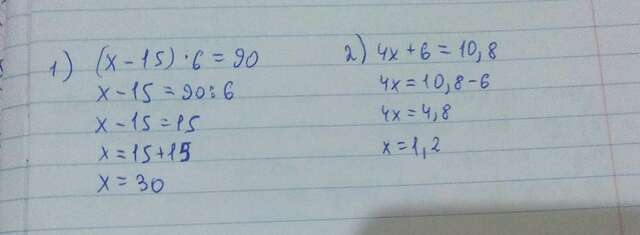 1) (x - 15) · 6 = 90
x - 15 = 90 : 6
x - 15 = 15
x = 15 + 15
x = 30
2) 4x + 6 = 10,8
4x = 10,8 - 6
4x = 4,8
x = 1,2